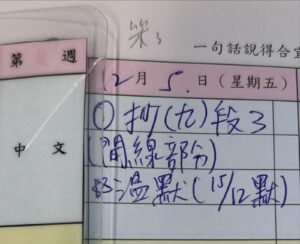 一句話說得合宜
第 週
12月5日(星期五)
中文
①抄(九)段3
(間線部分)
②溫默(15/12默)